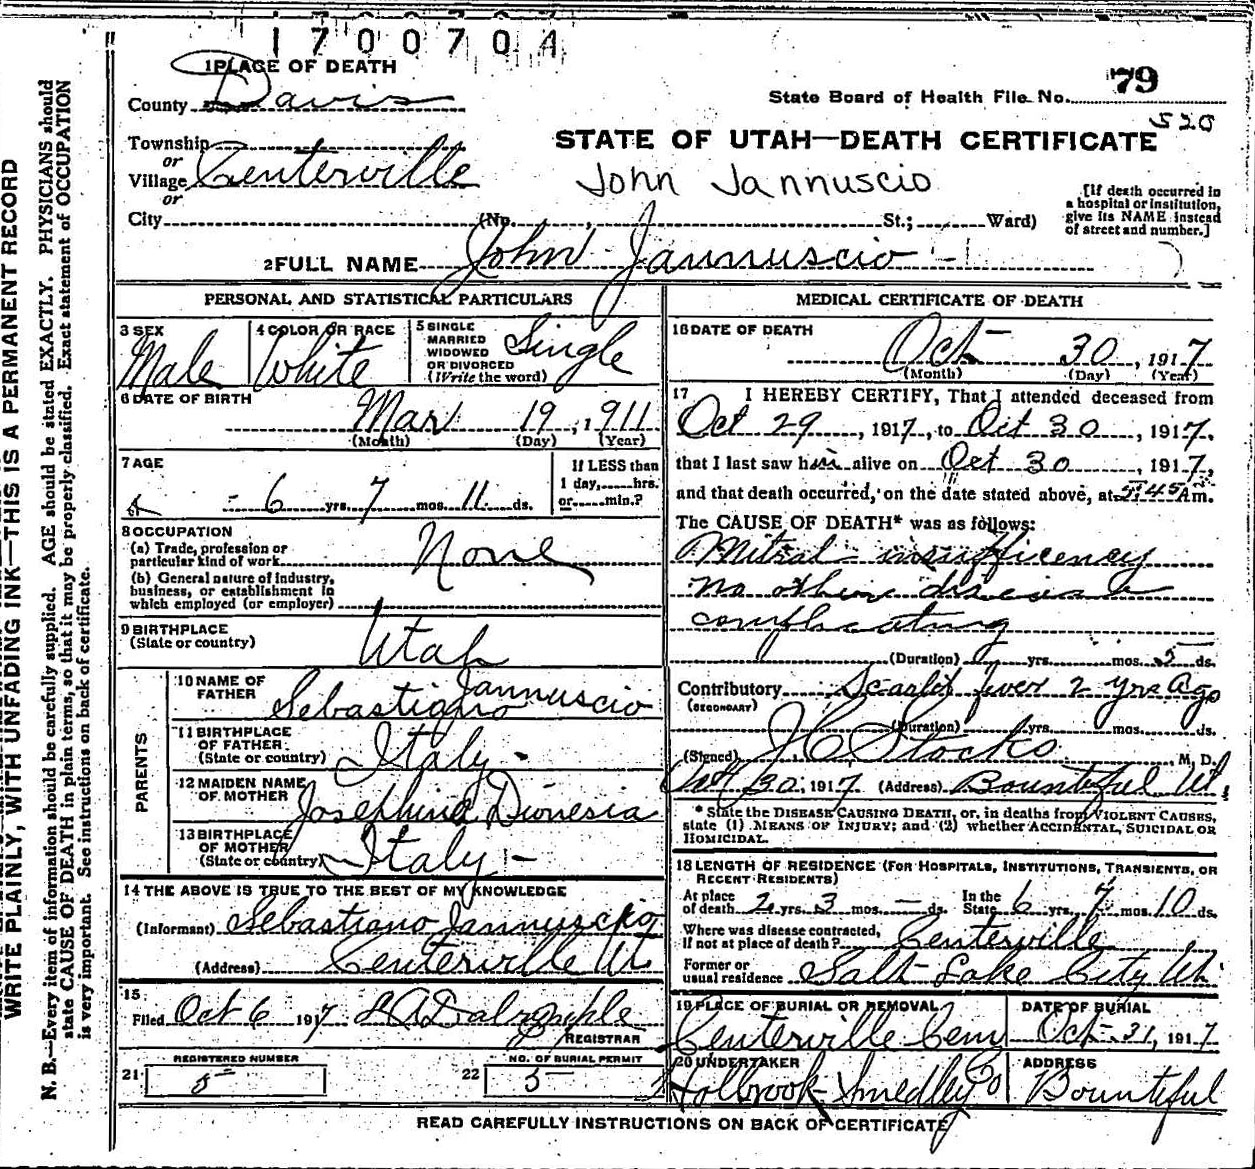 1700704
1 PLACE OF DEATH
County Davis
State Board of Health File No. 79
520
STATE OF UTAH—DEATH CERTIFICATE
Township
or
Village Centerville
or
John Jannuscio
City (No. , St.; Ward)
[If death occurred in
a hospital or institution,
give its NAME instead
of street and number.]
2 FULL NAME John Jannuscio
PERSONAL AND STATISTICAL PARTICULARS
3 SEX
Male
4 COLOR OR RACE
White
5 SINGLE
MARRIED
WIDOWED
OR DIVORCED
(Write the word)
Single
6 DATE OF BIRTH
Mar 19, 1911
(Month) (Day) (Year)
7 AGE
6 yrs. 7 mos. 11 ds.
If LESS than
1 day, hrs.
or min.?
8 OCCUPATION
(a) Trade, profession or
particular kind of work
None
(b) General nature of industry,
business, or establishment in
which employed (or employer)
9 BIRTHPLACE
(State or country)
Utah
PARENTS
10 NAME OF
FATHER
Sebastiano Jannuscio
11 BIRTHPLACE
OF FATHER
(State or country)
Italy
12 MAIDEN NAME
OF MOTHER
Josephine Dionesia
13 BIRTHPLACE
OF MOTHER
(State or country)
Italy
14 THE ABOVE IS TRUE TO THE BEST OF MY KNOWLEDGE
(Informant) Sebastiano Jannuscio
(Address) Centerville Ut
15
Filed Oct 6 1917 L A Dalrymple
REGISTRAR
REGISTERED NUMBER
21 5
NO. OF BURIAL PERMIT
22 5
MEDICAL CERTIFICATE OF DEATH
16 DATE OF DEATH
Oct 30, 1917
(Month) (Day) (Year)
17 I HEREBY CERTIFY, That I attended deceased from
Oct 29, 1917, to Oct 30, 1917,
that I last saw him alive on Oct 30, 1917,
and that death occurred, on the date stated above, at 45 Am.
The CAUSE OF DEATH* was as follows:
Mitral insufficency
no other disease
complicating
(Duration) yrs. mos. 5 ds.
Contributory Scarlet fever 2 yrs ago
(SECONDARY)
(Duration) yrs. mos. ds.
(Signed) J C Stocks, M. D.
Oct 30, 1917 (Address) Bountiful Ut.
* State the DISEASE CAUSING DEATH, or, in deaths from VIOLENT CAUSES,
state (1) MEANS OF INJURY; and (2) whether ACCIDENTAL, SUICIDAL OR
HOMICIDAL.
18 LENGTH OF RESIDENCE (FOR HOSPITALS, INSTITUTIONS, TRANSIENTS, OR
RECENT RESIDENTS)
At place
of death 2 yrs. 3 mos. — ds.
In the
State 6 yrs. 7 mos. 10 ds.
Where was disease contracted,
if not at place of death? Centerville
Former or
usual residence Salt Lake City Ut
19 PLACE OF BURIAL OR REMOVAL
Centerville Cem
DATE OF BURIAL
Oct 31, 1917
20 UNDERTAKER
Holbrook-Smedley Co
ADDRESS
Bountiful
READ CAREFULLY INSTRUCTIONS ON BACK OF CERTIFICATE
WRITE PLAINLY, WITH UNFADING INK—THIS IS A PERMANENT RECORD
N. B.—Every item of information should be carefully supplied. AGE should be stated EXACTLY. PHYSICIANS should
state CAUSE OF DEATH in plain terms, so that it may be properly classified. Exact statement of OCCUPATION
is very important. See instructions on back of certificate.